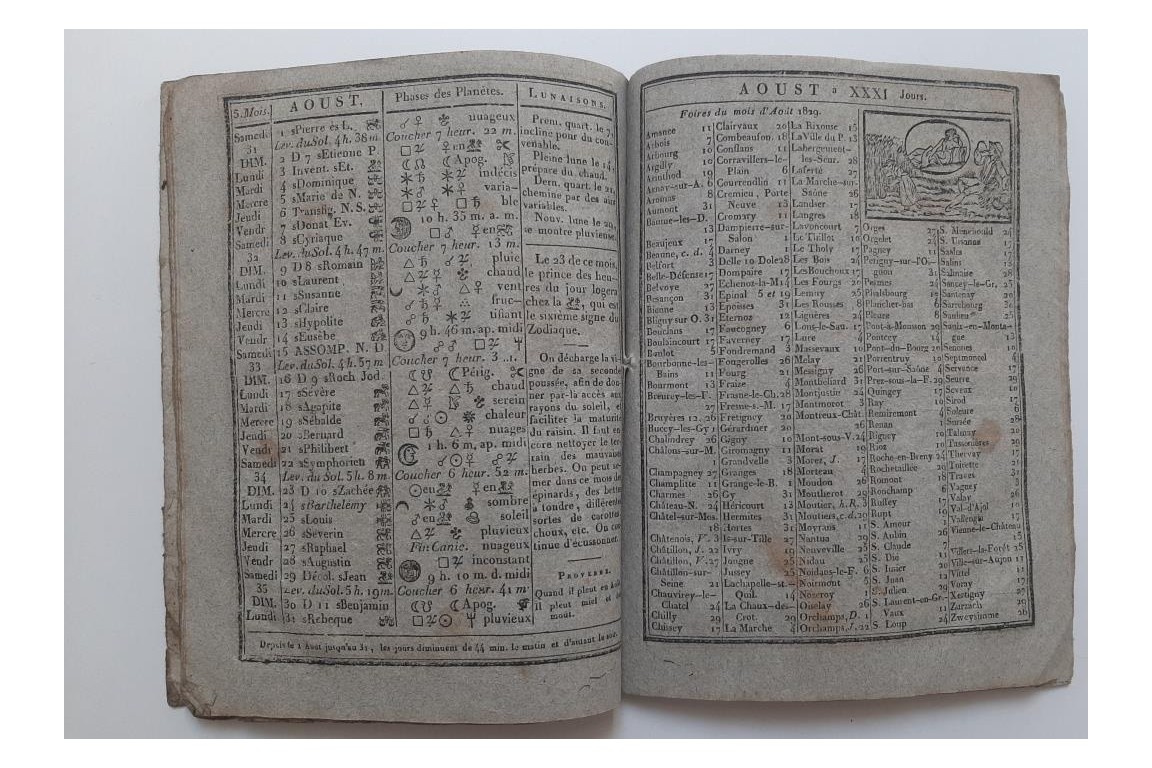 5. Mois.
AOUST,
Phases des Planétes.
LUNAISONS.
Samedi 1 sPierre ès L.
31 Lev. du Sol. 4 h. 38 m.
DIM. 2 D 7 sEtienne P.
Lundi 3 Invent. sEt.
Mardi 4 sDominique
Mercre 5 sMarie de N.
Jeudi 6 Transfig. N. S.
Vendr 7 sDonat Ev.
Samedi 8 sCyriaque
32 Lev. du Sol. 4 h. 47 m.
DIM. 9 D 8 sRomain
Lundi 10 sLaurent
Mardi 11 sSusanne
Mercre 12 sClaire
Jeudi 13 sHypolite
Vendr 14 sEusèbe
Samedi 15 ASSOMP. N. D
33 Lev. du Sol. 4 h. 57 m
DIM. 16 D 9 sRoch Jod.
Lundi 17 sSévère
Mardi 18 sAgapite
Mercre 19 sSébalde
Jeudi 20 sBernard
Vendr 21 sPhilibert
Samedi 22 sSymphorien
34 Lev. du Sol. 5 h. 8 m.
DIM. 23 D 10 sZachée
Lundi 24 sBarthelemy
Mardi 25 sLouis
Mercre 26 sSéverin
Jeudi 27 sRaphael
Vendr 28 sAugustin
Samedi 29 Décol. sJean
35 Lev. du Sol. 5 h. 19 m.
DIM. 30 D 11 sBenjamin
Lundi 31 sRebeque
nuageux
Coucher 7 heur. 22 m.
♀ en
Apog.
indécis
varia-
ble
10 h. 35 m. a. m.
♀ en
Coucher 7 heur. 13 m.
pluie
chaud
vent
fruc-
tifiant
9 h. 46 m. ap. midi
Coucher 7 heur. 3 m.
Périg.
chaud
serein
chaleur
nuages
1 h. 6 m. ap. midi
Coucher 6 heur. 52 m.
☉ en ♀ en
sombre
♂ en soleil
pluvieux
Fin Canic. nuageux
inconstant
9 h. 10 m. d. midi
Coucher 6 heur. 41 m.
Apog.
pluvieux
Prem. quart. le 7,
incline pour du con-
venable.
Pleine lune le 14,
prépare du chaud.
Dern. quart. le 21,
chemine par des aux
variables.
Nouv. lune le 29,
se montre pluvieuse.
Le 23 de ce mois,
le prince des heu-
res du jour logera
chez la, qui est
le sixième signe du
Zodiaque.
On décharge la vi-
gne de sa seconde
poussée, afin de don-
ner par-là accès aux
rayons du soleil, et
faciliter la maturité
du raisin. Il faut en-
core nettoyer le ter-
rain des mauvaises
herbes. On peut se-
mer dans ce mois des
épinards, des bettes
à tondre, différentes
sortes de carottes,
choux, etc. On con-
tinue d'écussonner.
PROVERBE.
Quand il pleut en Août,
il pleut miel et bon
moût.
Depuis le 1 Août jusqu'au 31, les jours diminuent de 44 min. le matin et d'autant le soir.
AOUST a XXXI Jours.
Foires du mois d'Août 1829.
Amance 11
Arbois 7
Arbourg 10
Argilly 10
Arinthod 19
Arnay-sur-A. 6
Aromas 8
Aumont 31
Baune-les-D.
13
Beaujeux 17
Beaune, c. d. 4
Belfort 3
Belle-Défense 17
Belvoye 27
Besançon 31
Bièvre 13
Bligny sur O. 31
Bouclans 17
Boulaincourt 17
Boulot 5
Bourbonne-les-
Bains 11
Bourmont 13
Breurey-les-F.
27
Bruyères 12. 26
Buccy-les-Gy 1
Chalindrey 26
Châlons-sur-M.
1
Champagney 27
Champlitte 11
Charmes 26
Château-N. 24
Châtel-sur-Mos.
18
Châtenois, V. 3
Châtillon, J. 22
Châtillon, V. 27
Châtillon-sur-
Seine 21
Chauvirey-le-
Chatel 24
Chilly 29
Chissey 17
Clairvaux 20
Combeaufon. 18
Conflans 11
Corravillers-le-
Plain 6
Courrendlin 11
Cremieu, Porte
Neuve 13
Cromary 11
Dampierre-sur-
Salon 1
Darney 1
Delle 10 Dole 28
Dompaire 17
Echenoz-la-M 14
Epinal 5 et 19
Epoisses 31
Eternoz 12
Faucogney 6
Faverney 17
Fondremand 3
Fougerolles 26
Fourg 21
Fraize 4
Frasne-le-Ch. 28
Fresne-s.-M. 17
Fretigney 20
Gérardmer 20
Gigny 10
Giromagny 11
Grandvelle 3
Granges 18
Grange-le-B. 1
Gy 31
Héricourt 13
Hermites 31
Hortes 31
Is-sur-Tille 27
Ivry 19
Jongue 25
Jussey 25
Lachapelle-st.-
Quil. 14
La Chaux-des-
Crot. 29
La Marche 4
La Rixouse 13
La Ville du P. 13
Labergement-
les-Seur. 28
Laferté 27
La Marche-sur-
Saône 26
Landser 17
Langres 18
Lavoncourt 7
Le Tillot 10
Le Tholy 17
Les Bois 24
Les Bouchoux 17
Les Fourgs 20
Lemuy 25
Les Rousses 8
Lignères 24
Lons-le-Sau. 17
Lure 4
Massevaux 10
Melay 21
Messigny 26
Montbeliard 31
Montjustin 24
Montmorot 3
Montreux-Chât.
26
Mont-sous-V. 24
Morat 19
Morez, J. 17
Morteau 4
Moudon 26
Moutherot 29
Moutier, A. R. 3
Moutiers, c. d. 29
Moyrans 11
Nantua 29
Neuveville 25
Nidau 25
Noidans-le-F. 6
Noirmont 5
Nozeroy 1
Oiselay 26
Orchamps, D. 1
Orchamps, J. 22
Orges 27
Orgelet 24
Pagney 11
Perigny-sur-l'O-
gnon 31
Pesmes 24
Phalsbourg 17
Plancher-bas 6
Pleure 8
Pont-à-Mousson 29
Pontcey 14
Pont-du-Bourg 20
Porrentruy 10
Port-sur-Saône 4
Prez-sous-la-F. 29
Quingey 17
Ray 10
Remiremont 4
Renan 1
Riguey 10
Rioz 10
Roche-en-Breny 24
Rochetaillée 29
Romont 18
Ronchamp 6
Ruffey 17
Rupt 19
S. Amour 1
S. Aubin 26
S. Claude 7
S. Die 11
S. Imier 20
S. Juan 12
S. Julien 29
S. Laurent-en-Gr.
Vaux 11
S. Loup 24
S. Menehould 24
S. Ursanne 17
Saales 17
Salins 17
Salnaise 28
Sancey-le-Gr. 25
Santenay 20
Sarrebourg 31
Saulieu
Saulx-en-Monta-
gne 13
Senones 10
Septmoncel 4
Servance 17
Seurre 29
Seveux 10
Sirod 17
Soleure 6
Sursée 28
Talmay 20
Tavannes 29
Thervay 17
Toisette 21
Traves 11
Vagney 31
Valay 26
Val-d'Ajol 10
Vallengin 17
Vienne-le-Château
Villers-la-Forêt 25
Ville-sur-Aujon 11
Vittel 11
Voray 17
Xertigny 27
Zurzach 24
Zweysimme 26